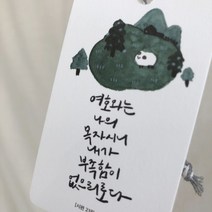 여호와는
나의
목자시니
내가
부족함이
없으리로다